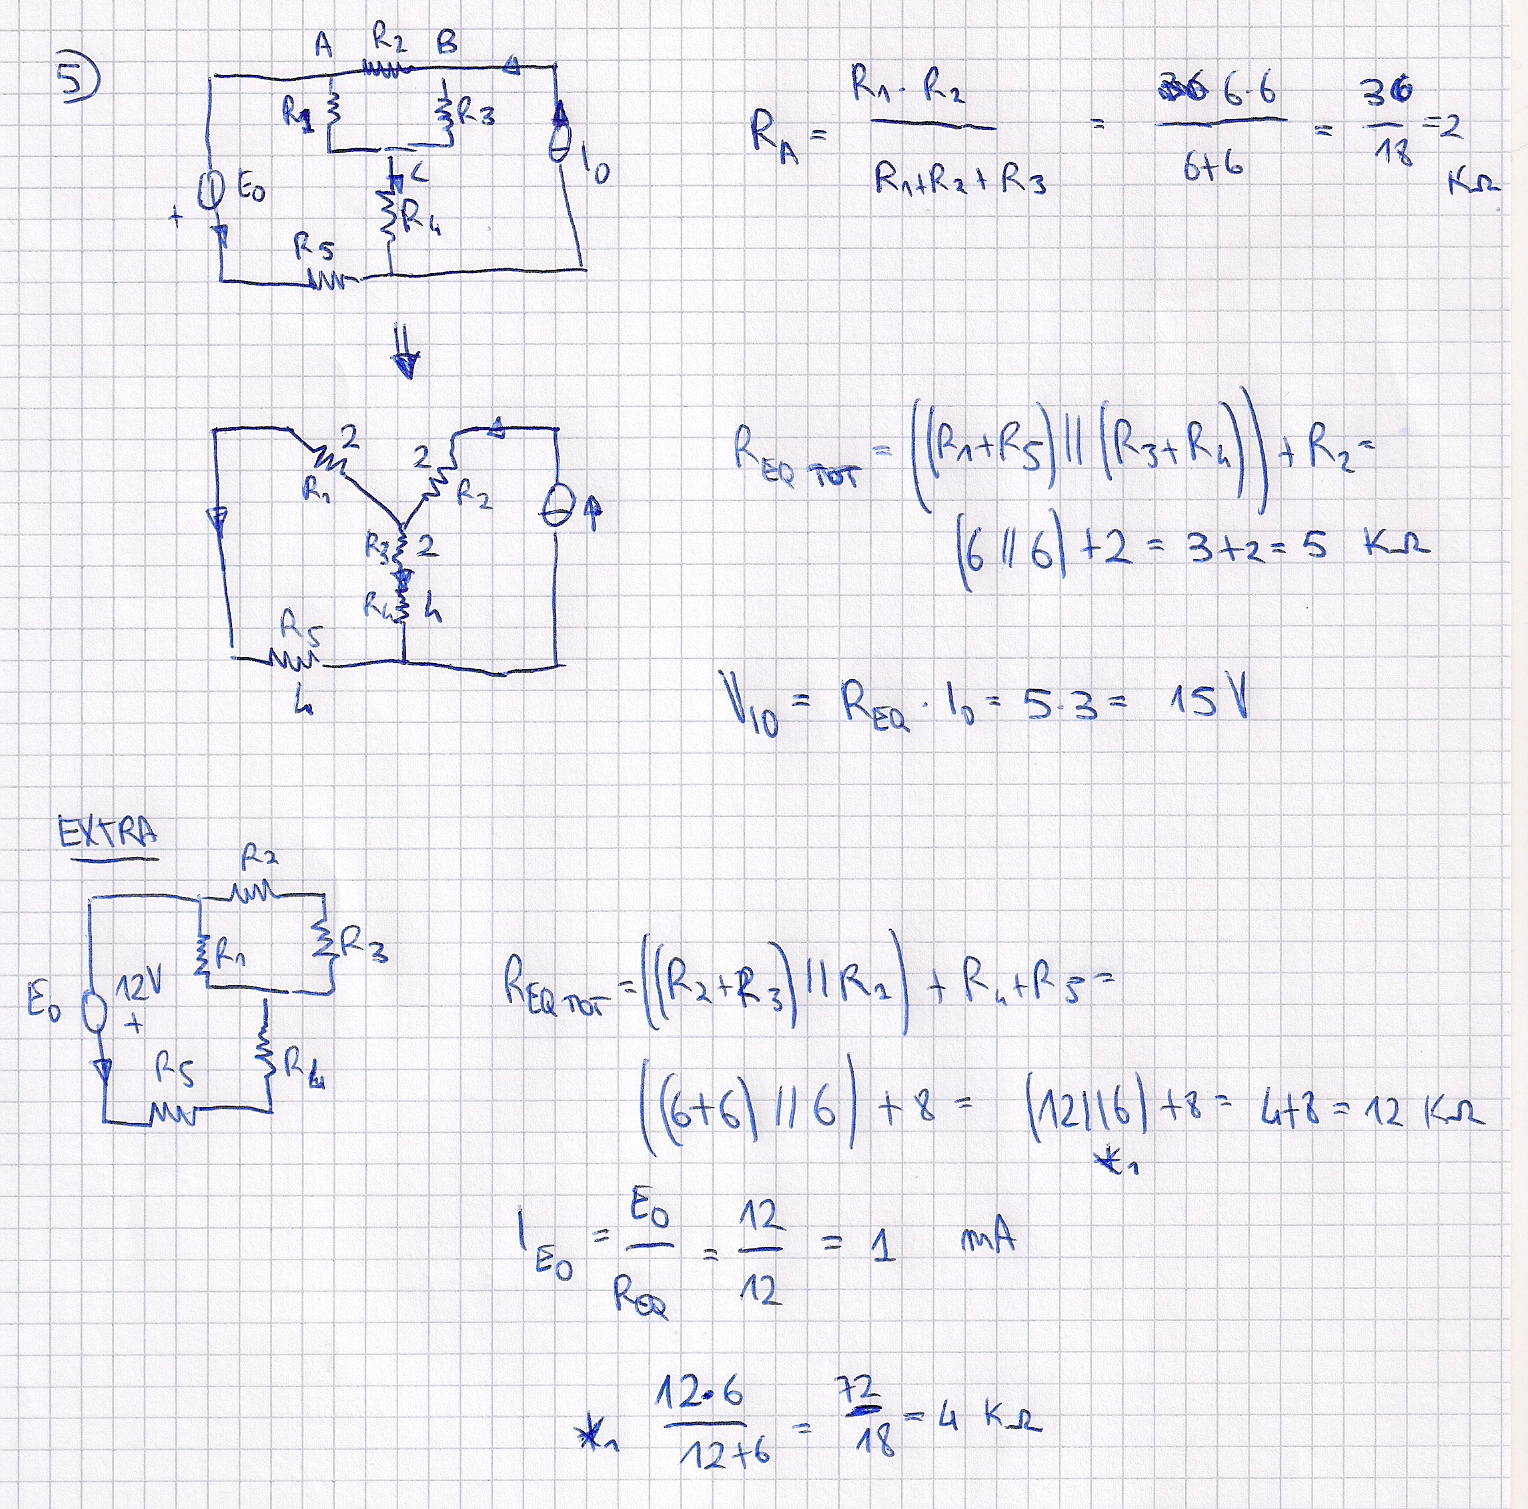 5)
A R2 B
R1 R3
I0
E0
+
C
R4
R5
RA = R1 · R2 / R1+R2+R3 = 6·6 / 6+6 = 36 / 18 = 2 KΩ
2 2
R1 R2
R3 2
R4 4
R5
4
REQ TOT = ((R1+R5) || (R3+R4)) + R2 =
(6 || 6) + 2 = 3+2 = 5 KΩ
VI0 = REQ · I0 = 5·3 = 15 V
EXTRA
R2
R1 R3
12V
E0
+
R5 R4
REQ TOT = ((R2+R3) || R1) + R4+R5 =
((6+6) || 6) + 8 = (12||6) +8 = 4+8 = 12 KΩ
*1
IE0 = E0 / REQ = 12 / 12 = 1 mA
*1 12·6 / 12+6 = 72 / 18 = 4 KΩ